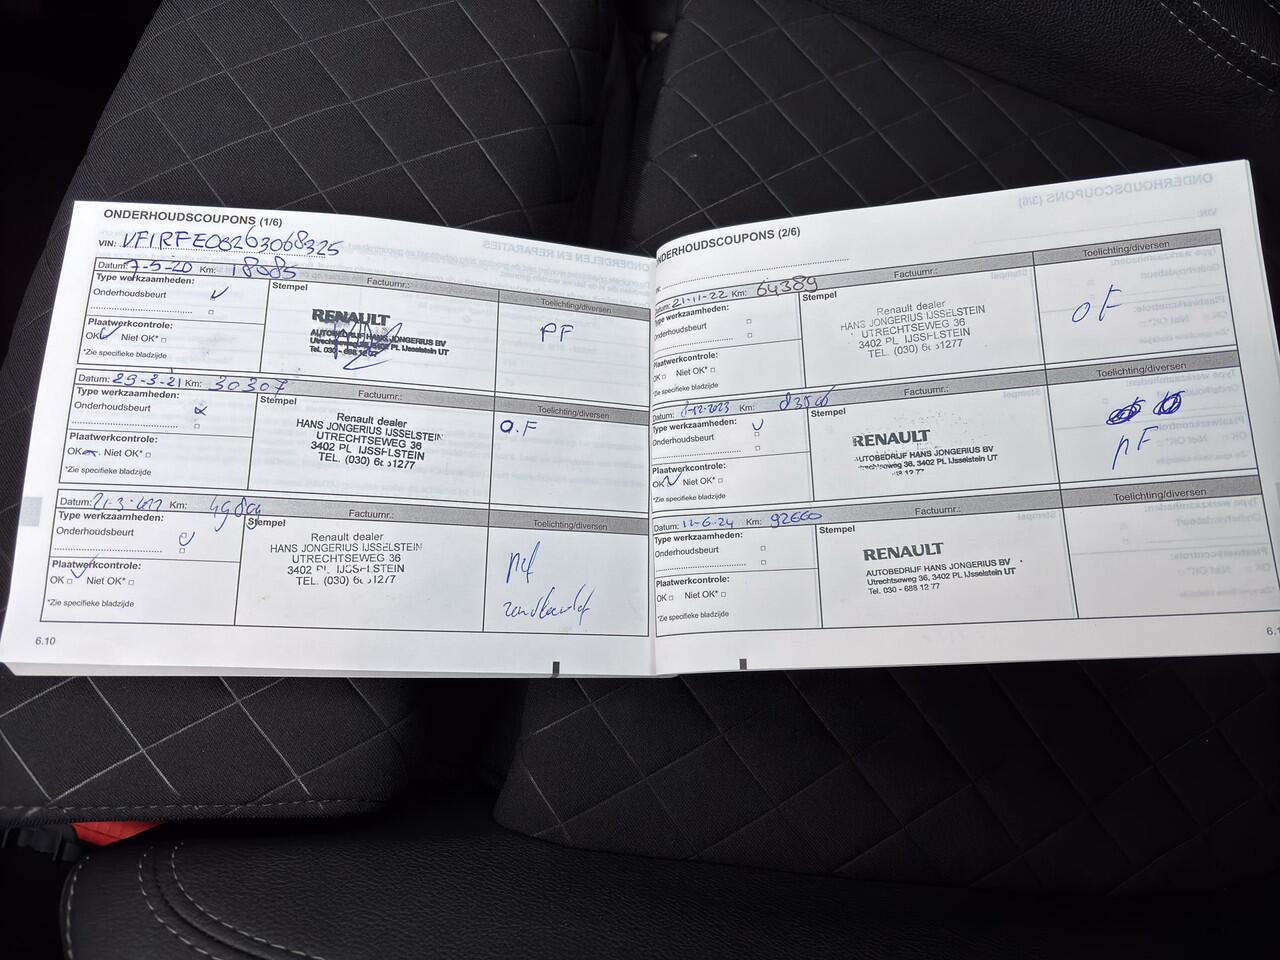 ONDERHOUDSCOUPONS (1/6)
VIN: VF1RFE08263068325
Datum: 7-5-20 Km: 18085 Factuurnr.:
Type werkzaamheden:
Stempel
Toelichting/diversen
Onderhoudsbeurt
RENAULT
AUTOBEDRIJF HANS JONGERIUS BV
Utrechtseweg 36, 3402 PL IJsselstein UT
Tel. 030 - 688 12 77
PF
Plaatwerkcontrole:
OK Niet OK*
*Zie specifieke bladzijde
Datum: 29-3-21 Km: 30307 Factuurnr.:
Type werkzaamheden:
Stempel
Toelichting/diversen
Onderhoudsbeurt
Renault dealer
HANS JONGERIUS IJSSELSTEIN
UTRECHTSEWEG 36
3402 PL IJSSELSTEIN
TEL. (030) 6 1277
O.F
Plaatwerkcontrole:
OK Niet OK*
*Zie specifieke bladzijde
Datum: 21-3-2022 Km: 49804 Factuurnr.:
Type werkzaamheden:
Stempel
Toelichting/diversen
Onderhoudsbeurt
Renault dealer
HANS JONGERIUS IJSSELSTEIN
UTRECHTSEWEG 36
3402 PL IJSSELSTEIN
TEL. (030) 6 1277
Plaatwerkcontrole:
OK Niet OK*
*Zie specifieke bladzijde
6.10
NDERHOUDSCOUPONS (2/6)
atum: 21-11-22 Km: 64389 Factuurnr.:
Type werkzaamheden:
Stempel
Toelichting/diversen
Onderhoudsbeurt
Renault dealer
HANS JONGERIUS IJSSELSTEIN
UTRECHTSEWEG 36
3402 PL IJSSELSTEIN
TEL. (030) 6 1277
OF
Plaatwerkcontrole:
OK Niet OK*
*Zie specifieke bladzijde
Datum: 8-12-2023 Km: Factuurnr.:
Type werkzaamheden:
Stempel
Toelichting/diversen
Onderhoudsbeurt
RENAULT
AUTOBEDRIJF HANS JONGERIUS BV
Utrechtseweg 36, 3402 PL IJsselstein UT
88 12 77
PF
Plaatwerkcontrole:
OK Niet OK*
*Zie specifieke bladzijde
Datum: 12-6-24 Km: 92660 Factuurnr.:
Type werkzaamheden:
Stempel
Toelichting/diversen
Onderhoudsbeurt
RENAULT
AUTOBEDRIJF HANS JONGERIUS BV
Utrechtseweg 36, 3402 PL IJsselstein UT
Tel. 030 - 688 12 77
Plaatwerkcontrole:
OK Niet OK*
*Zie specifieke bladzijde
6.1